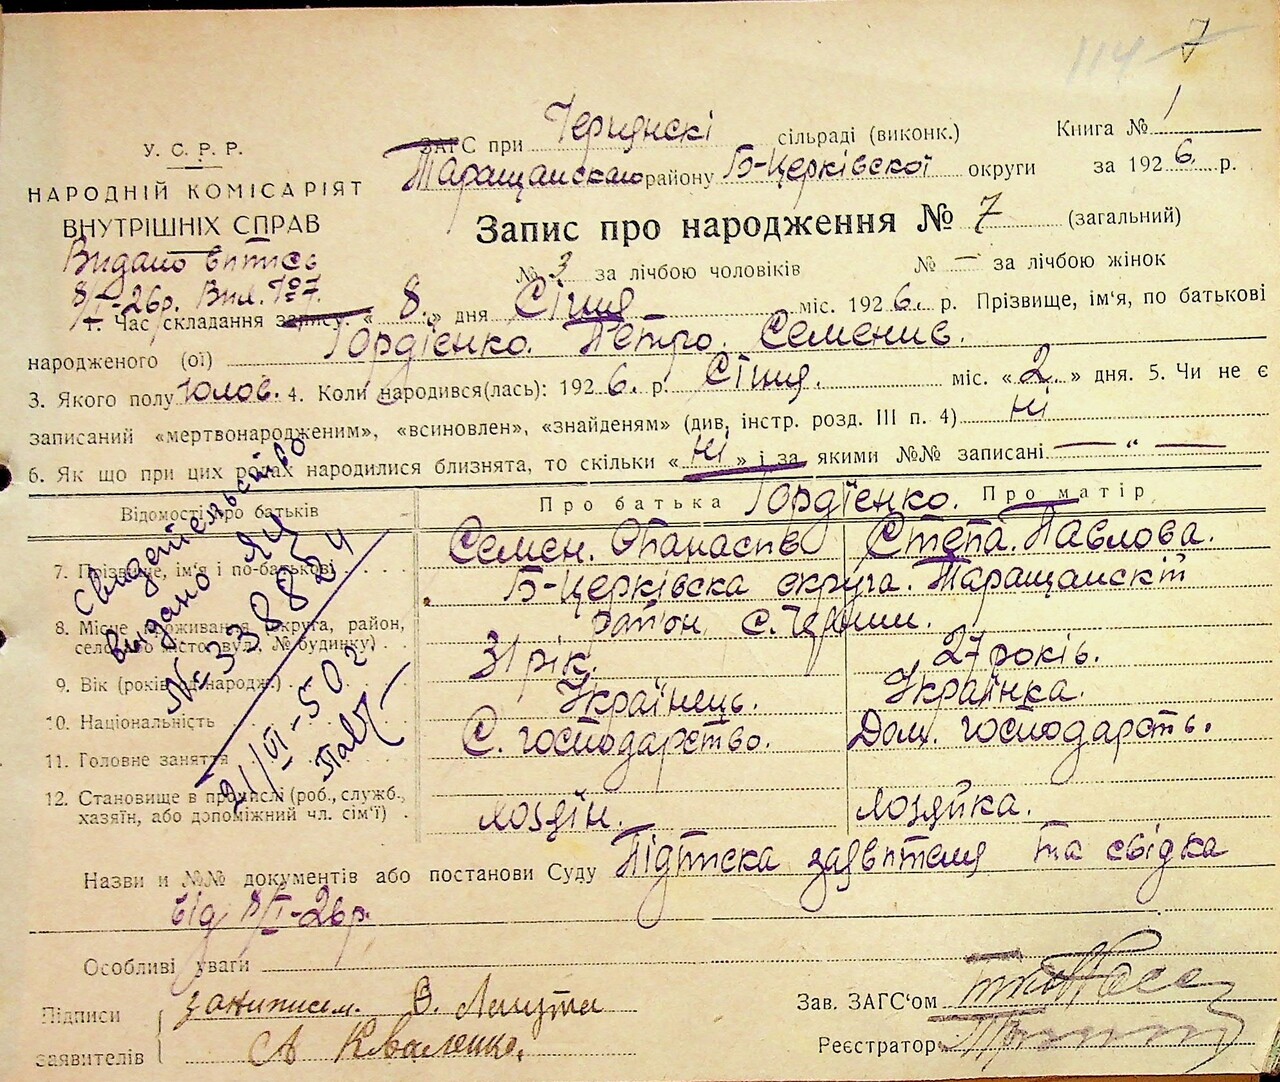 114 7
У. С. Р. Р.
НАРОДНІЙ КОМІСАРІЯТ
ВНУТРІШНІХ СПРАВ
Видано випись
8/I-26р. Вил. №7.
ЗАГС при сільраді (виконк.) Книга № 1
Таращанскаго району Б-Церківскої округи за 1926. р.
Запис про народження № 7 (загальний)
№ 3 за лічбою чоловіків № — за лічбою жінок
1. Час складання запису: « 8. » дня Січня міс. 1926. р. Прізвище, ім'я, по батькові
народженого (ої) Гордієнко. Петро. Семенів.
3. Якого полу чолов. 4. Коли народився(лась): 1926. р. Січня. міс. « 2 » дня. 5. Чи не є
записаний «мертвонародженим», «всиновлен», «знайденям» (див. інстр. розд. III п. 4) ні
6. Як що при цих родах народилися близнята, то скільки « ні » і за якими №№ записані — " —
Відомості про батьків Про батька Гордієнко. Про матір
7. Прізвище, ім'я і по-батькові Семен. Опанасів Степа. Павлова.
Б-Церківска округа. Таращанскій
8. Місце проживання (округа, район, район, с.
село або місто, вул., № будинку)
9. Вік (років од народж.) 31 рік. 27 років.
10. Національність Українець. Українка.
11. Головне заняття С. господарство. Дом. господарсть.
12. Становище в промислі (роб., служб.,
хазяїн, або допоміжний чл. сім'ї) хозяїн. хозяйка.
Свидетельство
выдано ЯЦ
№ 338824
21/VI-50 г
Назви и №№ документів або постанови Суду Підписка заявителя та свідка
від 8/I-26р.
Особливі уваги
Підписи
заявителів
А Коваленко.
Зав. ЗАГС'ом
Реєстратор